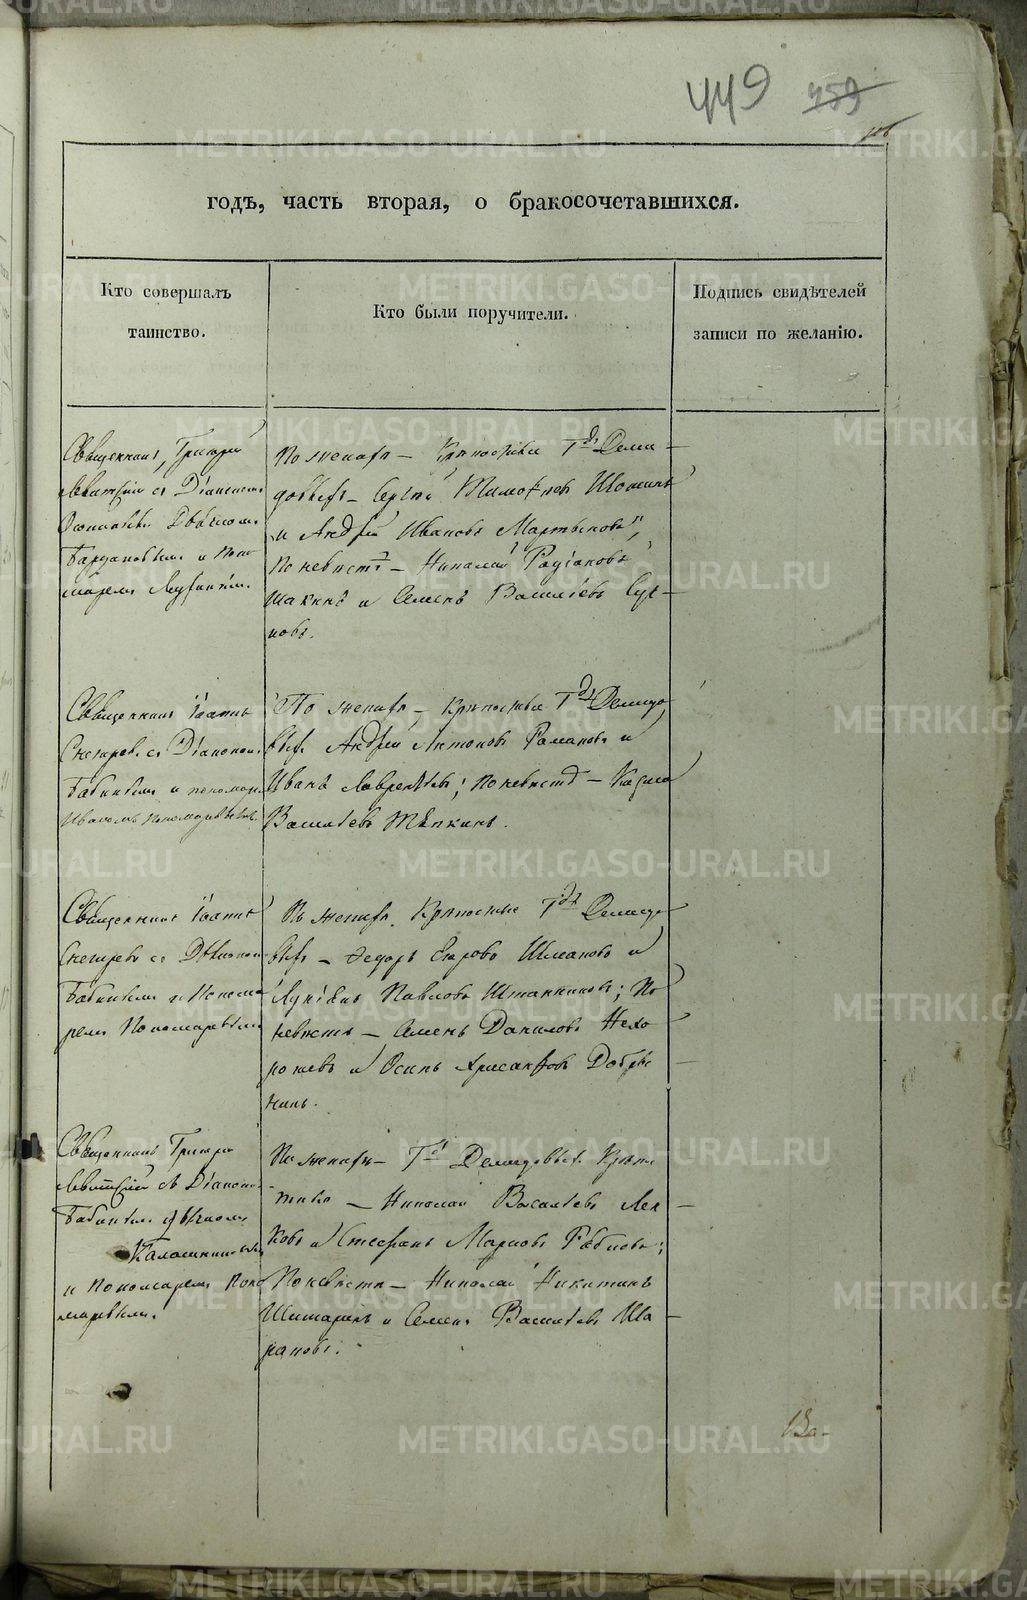 449 459
годъ, часть вторая, о бракосочетавшихся.
Кто совершалъ
таинство.
Кто были поручители.
Подпись свидѣтелей
записи по желанію.
Священникъ Григорій
Левитскій съ Діакономъ
и Поно
марем
По женихѣ – Крѣпостные Гдъ Деми–
довыхъ – Сергѣй Тимофѣевъ Шоминъ
и Андрей Ивановъ Мартыновъ,
По невѣстѣ – Николай Родіоновъ
и Семенъ Васильевъ
новъ.
Священникъ Іоаннъ
Снегирев съ Діакономъ
Бабинымъ и пономар
Иваномъ Пономаревымъ
По женихѣ – Крѣпостные Гдъ Демидо
выхъ Андрей Антоновъ Романовъ и
Иванъ Лаврентьевъ; по невѣстѣ – Казма
Васильевъ Тяпкинъ.
Священникъ Іоаннъ
Снегиревъ съ Діаконом
Бабинымъ и Понома
ремъ Пономаревымъ
По женихѣ Крѣпостные Гдъ Демидо
выхъ – Федоръ Егоровъ Шмаковъ и
Лукіянъ Павловъ Штанниковъ; По
невѣстѣ – Семенъ Даниловъ Нехо
рошевъ и Осипъ Хрисанфовъ Добры
нинъ.
Священникъ Григорій
Левитскій съ Діаконо
Бабинымъ дьячкомъ
Калашниковымъ
и Пономаремъ Поно
маревымъ.
По женихѣ – Гд Демидовыхъ Крѣпо
стные – Николай Васильевъ Лея
ковъ и Стефанъ Марковъ Рябковъ;
По невѣстѣ – Николай Никитинъ
Шишаринъ и Семенъ Васильевъ Ша–
раповъ.
METRIKI.GASO-URAL.RU